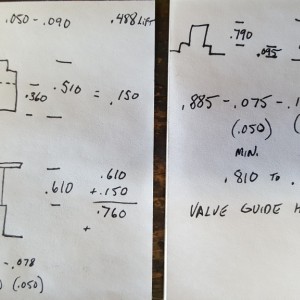 .050 - .090
.488 LIFT
.360 .510 = .150
.610
.610
+.150
.760
+
- .078
(.050)
.790
.095
.885 - .075 -
(.050)
MIN.
.810 TO
VALVE GUIDE